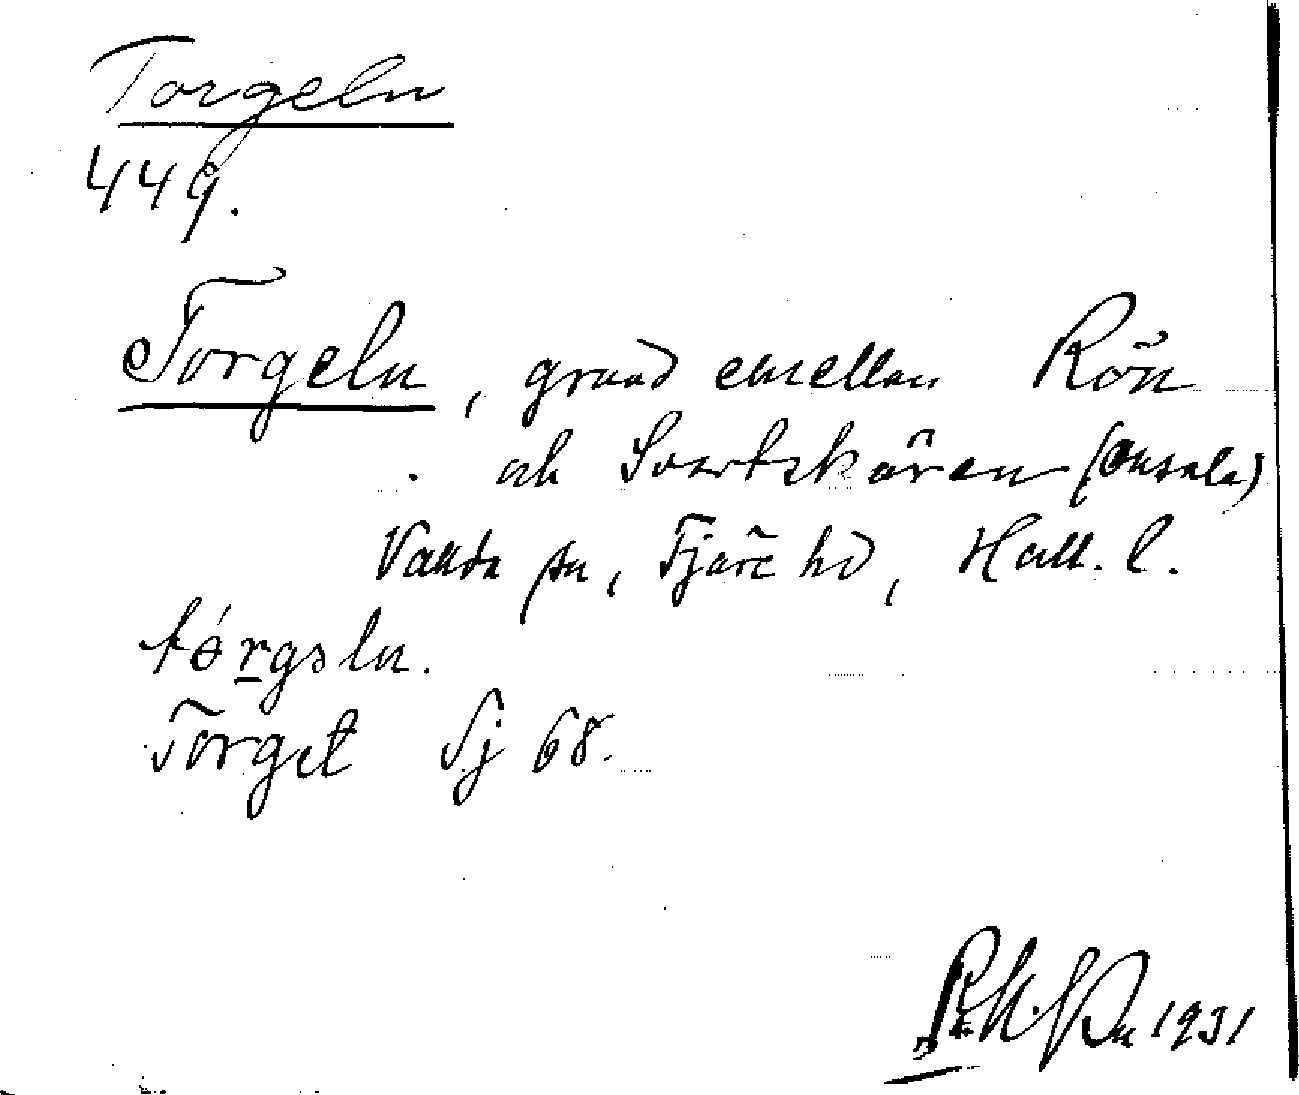 Torgeln
449.
Torgeln, grund emellan Rön
och Svartskären (Onsala)
Vallda sn, Fjäre hd, Hall. l.
Torget Sj 68.
1931